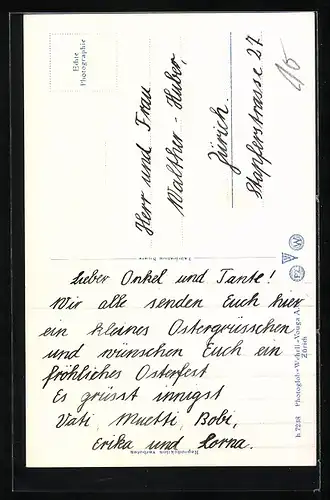 Echte
Photographie
Herr und Frau
Walther-Huber,
Zürich.
Stapferstrasse 27
Lieber Onkel und Tante!
Wir alle senden Euch hier
ein kleines Ostergrüsschen
und wünschen Euch ein
fröhliches Osterfest
Es grüsst innigst
Vati, Muetti, Bobi,
Erika und Lorna.
Reproduktion verboten
k 7238 Photoglob-Wehrli-Vouga A.G.
Zürich